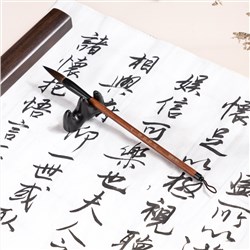 懷足以極視聽
娛信可樂也夫人之
相與仰一世或
諸懷抱悟言一